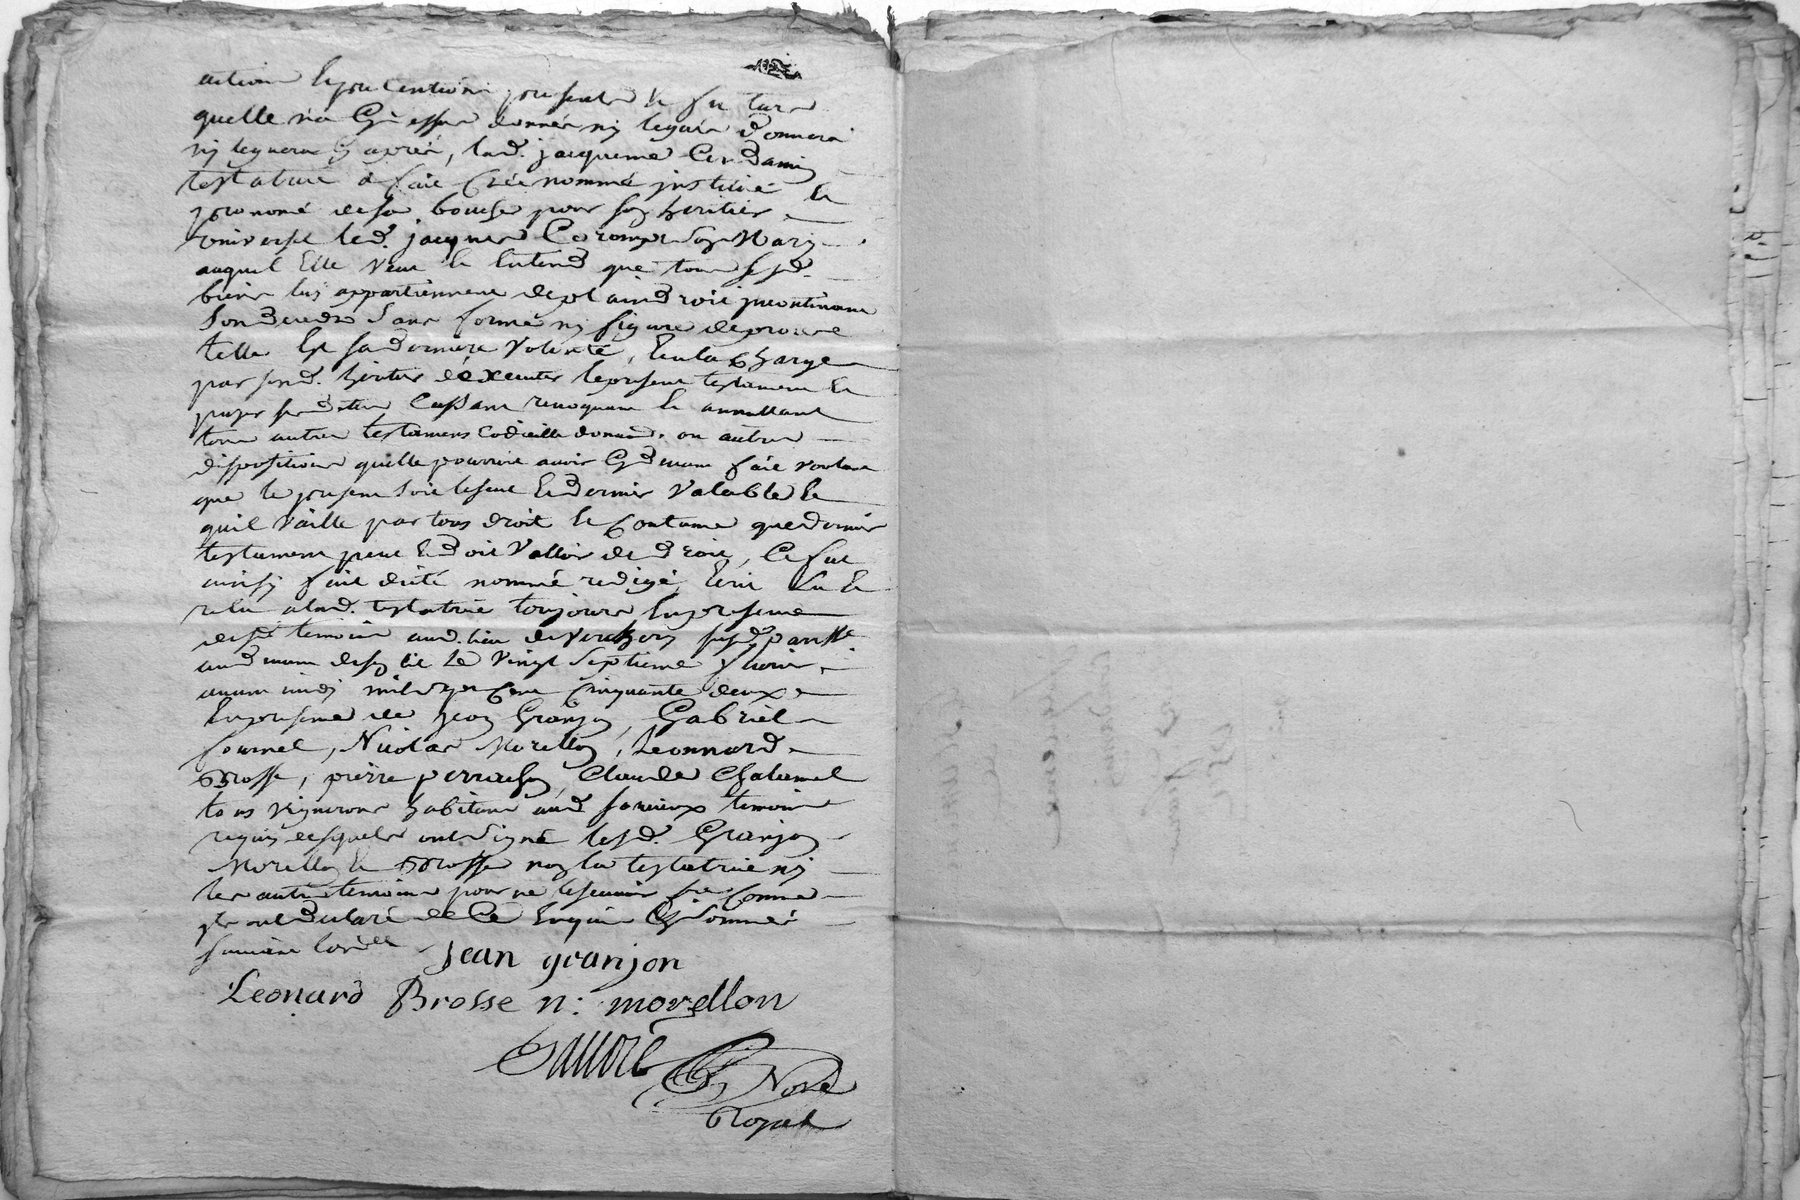 action et prétentions présents et futurs
quelle n'a Cy dessus donnés ny legués donnera
ny leguera Cy après, lad. jacqueme
testatrice a fait Créé nommé institué et
prononcé de sa bouche pour son heritier
universel led. jacques son Mary
auquel Elle veut Et Entend que tous sesd.
biens luy appartiennent de plain droit incontinant
son deceds sans forme ny figure de procès
telle Est sa derniere volonté, Et a chargé
par sond. heritier dexecuter le present testament Et
payer ses dettes Cassant revoquant Et annullant
tous autres testamens Codicille donnaõn. ou autres
dispositions quelle pourroit avoir Cy devant fait voulant
que le present soit le seul Et dernier valable Et
quil vaille par tous droit Et Coutume que dernier
testament peut Et doit valloir de droit, Ce fut
ainsy fait dicté nommé redigé Ecrit Lu Et
relu a lad. testatrice toujours En presence
desd. temoins aud. lieu de susd. parsse
aud. de son lit Le vingt septieme
avant midy mil sept Cent Cinquante deux
En presence de jean Granjon, Gabriel
fournel, Nicolas Morellon, Leonnard
Brosse, pierre perrachon, Claude Chalumel
tous vignerons habitans aud. temoins
requis lesquels ont signé lesd. Granjon
Morellon Et Brosse non la testatrice ny
les autres temoins pour ne le scavoir fre Comme
ils ont declaré de Ce Enquis Et sommés
suivant lordce
jean granjon
Leonard Brosse n: morellon
Nore
Royal